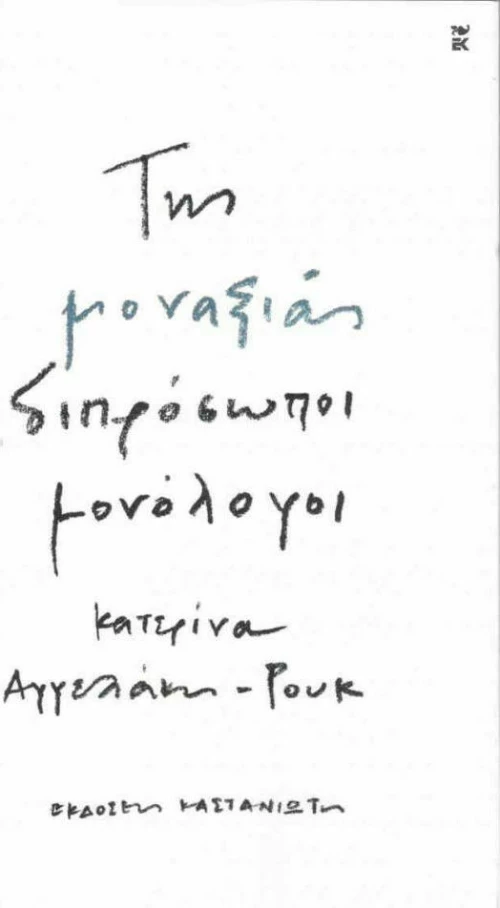 Της
μοναξιάς
διπρόσωποι
μονόλογοι
κατερίνα
Αγγελάκη - Ρουκ
ΕΚΔΟΣΕΙς ΚΑΣΤΑΝΙΩΤη